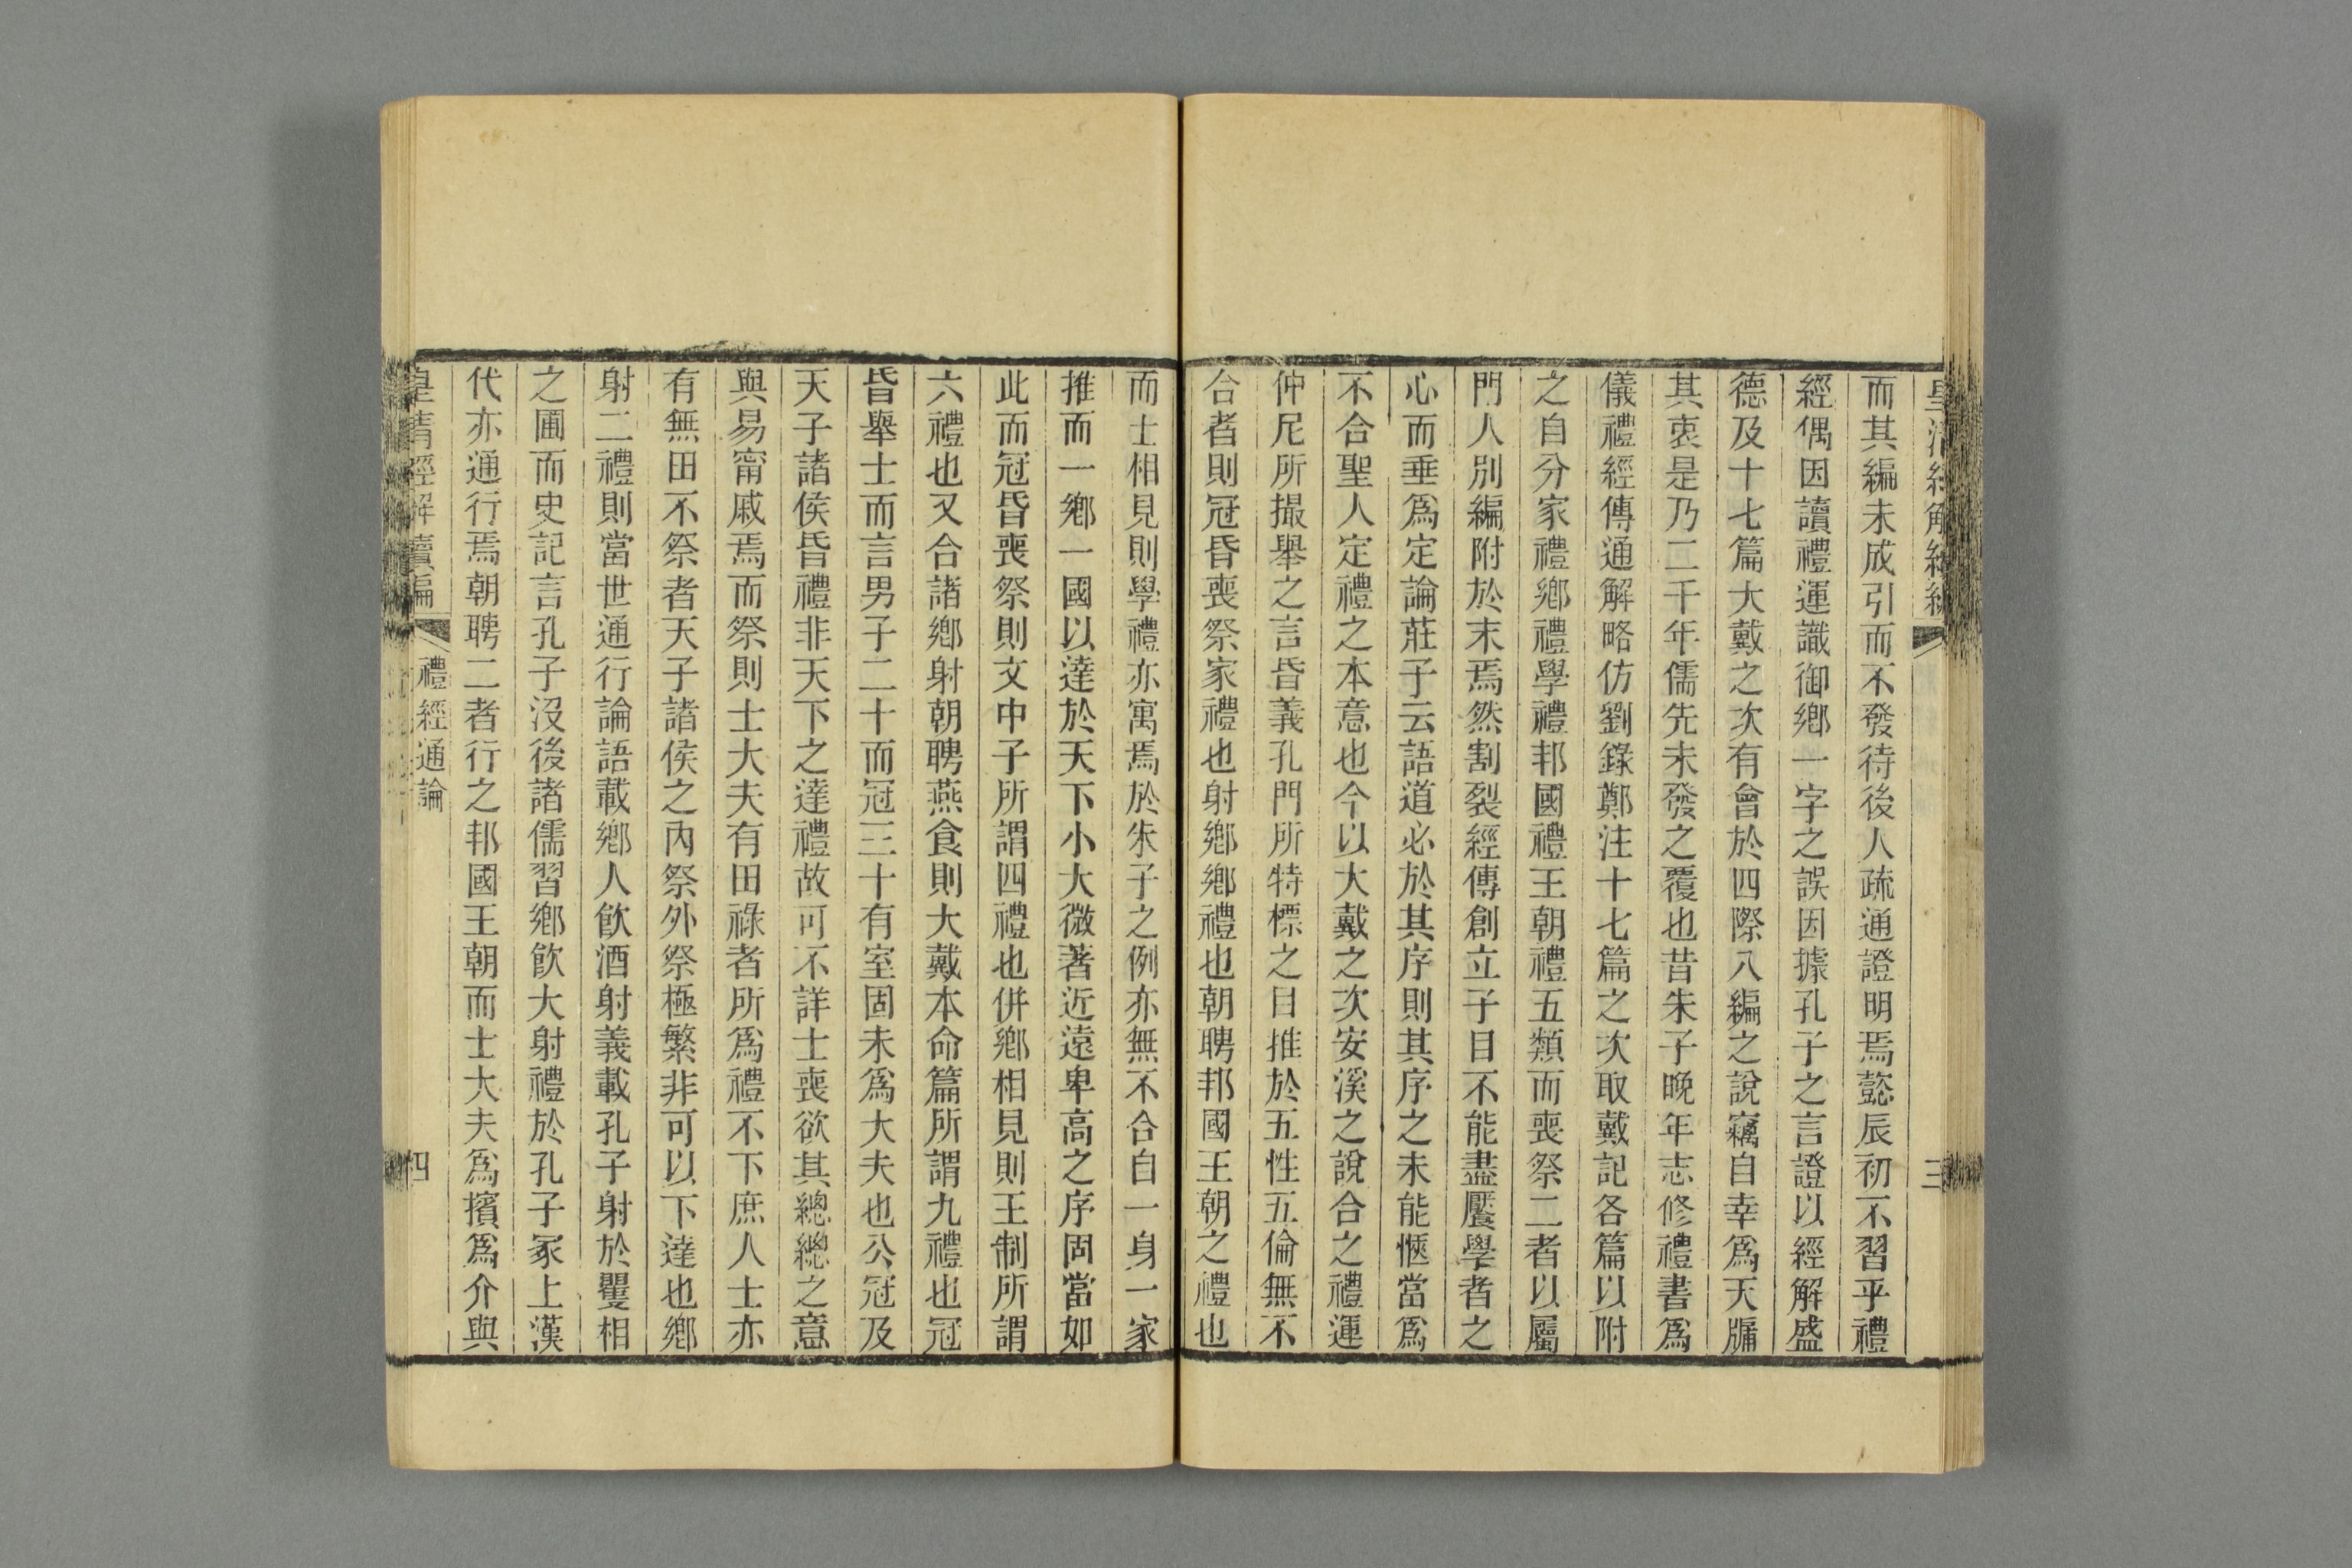 皇清經解續編 三
而其編未成引而不發待後人疏通證明焉懿辰初不習乎禮
經偶因讀禮運識御鄉一字之誤因據孔子之言證以經解盛
德及十七篇大戴之次有會於四際八編之說竊自幸爲天牖
其衷是乃二千年儒先未發之覆也昔朱子晚年志修禮書爲
儀禮經傳通解略仿劉錄鄭注十七篇之次取戴記各篇以附
之自分家禮鄉禮學禮邦國禮王朝禮五類而喪祭二者以屬
門人別編附於末焉然割裂經傳創立子目不能盡饜學者之
心而垂爲定論莊子云語道必於其序則其序之未能愜當爲
不合聖人定禮之本意也今以大戴之次安溪之說合之禮運
仲尼所撮舉之言昏義孔門所特標之目推於五性五倫無不
合者則冠昏喪祭家禮也射鄉鄉禮也朝聘邦國王朝之禮也
而士相見則學禮亦寓焉於朱子之例亦無不合自一身一家
推而一鄉一國以達於天下小大微著近遠卑高之序固當如
此而冠昏喪祭則文中子所謂四禮也併鄉相見則王制所謂
六禮也又合諸鄉射朝聘燕食則大戴本命篇所謂九禮也冠
昏舉士而言男子二十而冠三十有室固未爲大夫也公冠及
天子諸侯昏禮非天下之達禮故可不詳士喪欲其總總之意
與易甯戚焉而祭則士大夫有田祿者所爲禮不下庶人士亦
有無田不祭者天子諸侯之內祭外祭極繁非可以下達也鄉
射二禮則當世通行論語載鄉人飲酒射義載孔子射於矍相
之圃而史記言孔子沒後諸儒習鄉飲大射禮於孔子冢上漢
代亦通行焉朝聘二者行之邦國王朝而士大夫爲擯爲介與
皇清經解續編 禮經通論 四